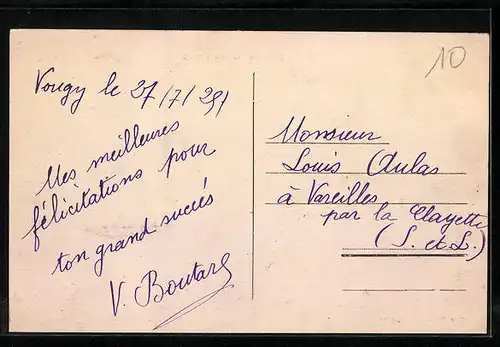 10
Vougy le 27/7/29
Mes meilleures
félicitations pour
ton grand succès
V. Boutard
Monsieur
Louis Aulas
à Vareilles
par la Clayette
(S. et L.)